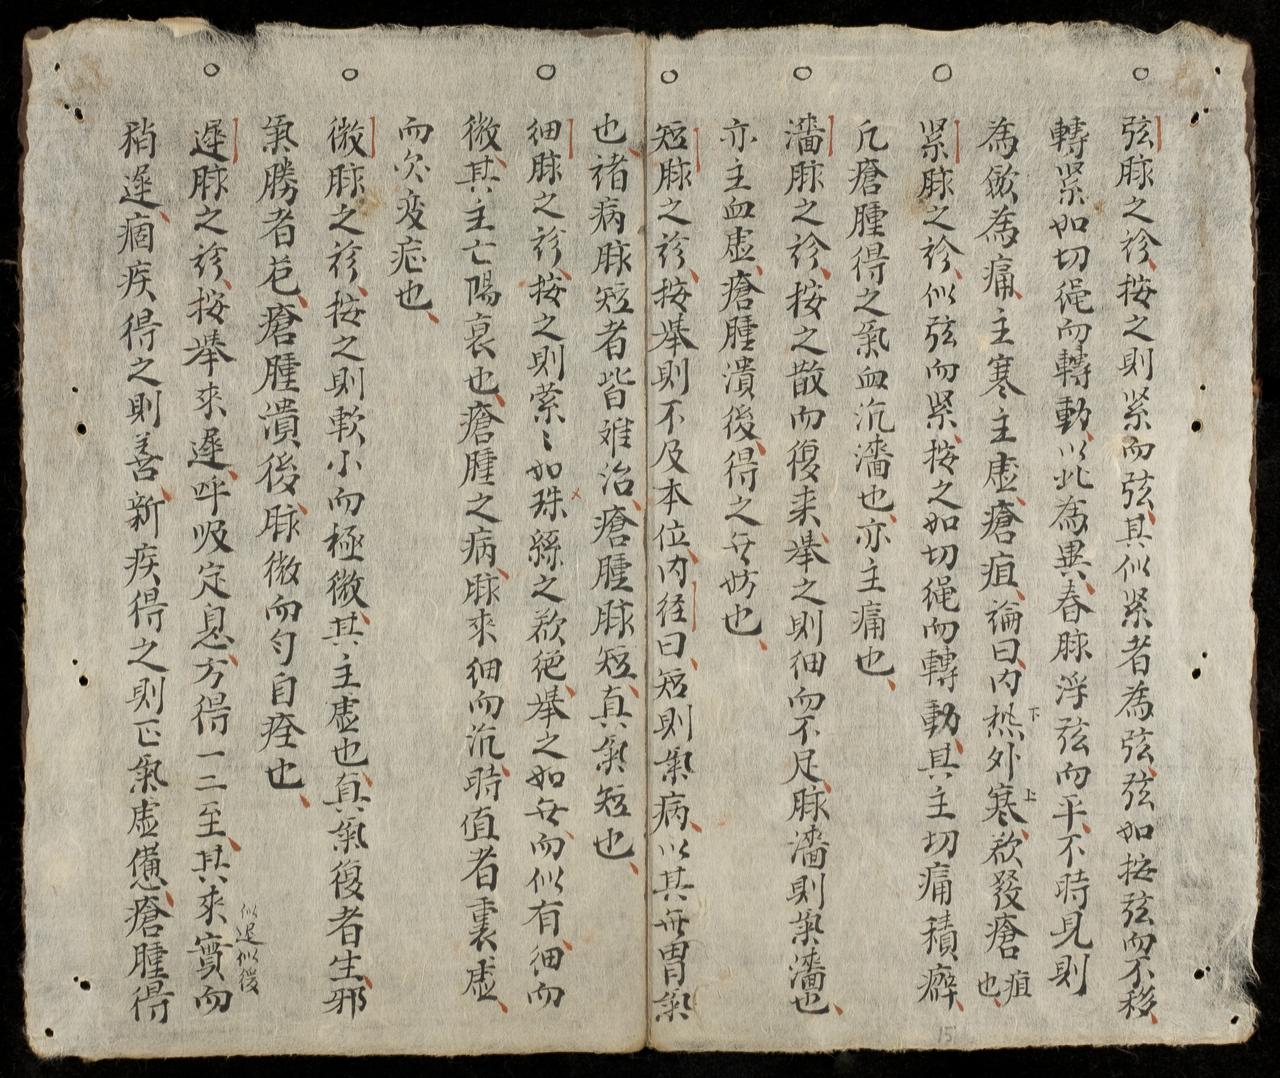 弦脉之診按之則緊而弦其似緊者為弦弦如按弦而不移
轉緊如切繩而轉動以此為異春脉浮弦而平不時見則
為飲為痛主寒主虛瘡疽論曰内热外寒欲發瘡疽也
下
上
緊脉之診似弦而緊按之如切繩而轉動其主切痛積癖
凡瘡腫得之氣血沉濇也亦主痛也
濇脉之診按之散而復来舉之則细而不足脉濇則氣濇也
亦主血虛瘡腫潰後得之无妨也
短脉之診按舉則不及本位内径曰短則氣病以其无胃氣
也諸病脉短者皆难治瘡腫脉短真氣短也
细脉之診按之則萦〻如珠絲之欲绝舉之如无而似有细而
微其主亡陽衰也瘡腫之病脉來细而沉時值者裏虛
而欠变症也
微脉之診按之則軟小而極微其主虛也真氣復者生邪
氣勝者危瘡腫潰後脉微而匀自痊也
遲脉之診按舉來遲呼吸定息方得一二至其來實而
似遲似緩
稍遲痼疾得之則善新疾得之則正氣虛憊瘡腫得
15